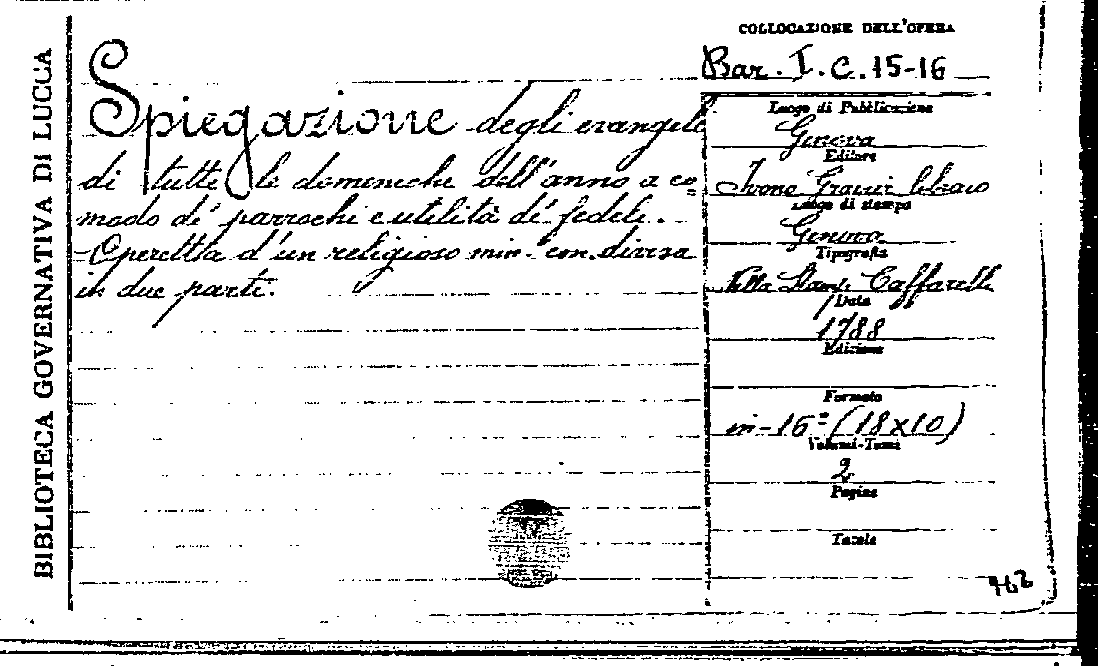 BIBLIOTECA GOVERNATIVA DI LUCCA
Spiegazione degli evangeli
di tutte le domeniche dell'anno a co=
modo di' parrochi e utilità di' fedeli.
Operetta d'un religioso min. divisa
in due parti.
COLLOCAZIONE DELL'OPERA
Bar. I. C. 15-16
Luogo di Pubblicazione
Genova
Editore
Ivone Gravier libraio
Luogo di stampa
Genova
Tipografia
Nella Stamp. Caffarelli
Data
1788
Edizione
Formato
in-16º (18x10)
Volumi-Tomi
2
Pagine
Tavole